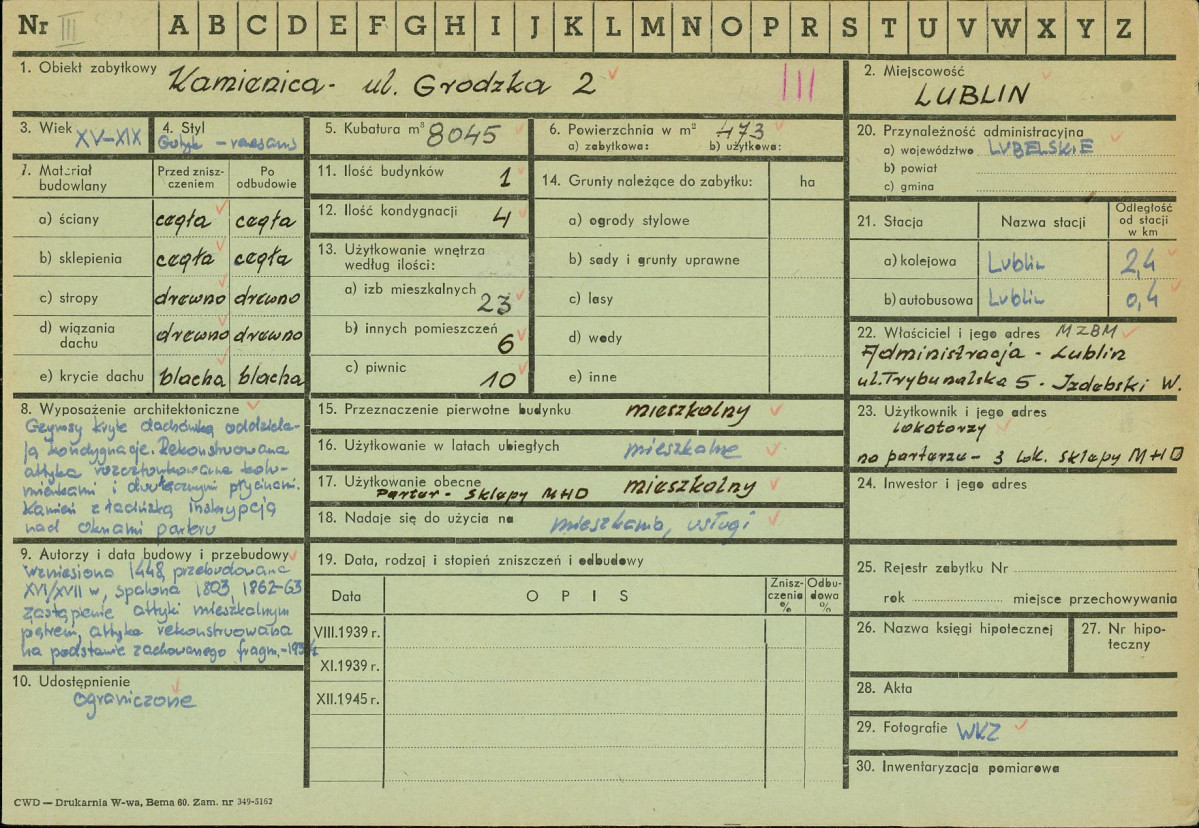 Nr III A B C D E F G H I J K L M N O P R S T U V W X Y Z
1. Obiekt zabytkowy Kamienica - ul. Grodzka 2 III
2. Miejscowość
LUBLIN
3. Wiek XV-XIX
4. Styl
Gotyk - renesans
5. Kubatura m³ 8045
6. Powierzchnia w m² 473
a) zabytkowa: b) użytkowa:
20. Przynależność administracyjna
a) województwo LUBELSKIE
b) powiat
c) gmina
7. Materiał budowlany
Przed zniszczeniem
Po odbudowie
a) ściany cegła cegła
b) sklepienia cegła cegła
c) stropy drewno drewno
d) wiązania dachu drewno drewno
e) krycie dachu blacha blacha
11. Ilość budynków 1
12. Ilość kondygnacji 4
13. Użytkowanie wnętrza
według ilości:
a) izb mieszkalnych 23
b) innych pomieszczeń 6
c) piwnic 10
14. Grunty należące do zabytku: ha
a) ogrody stylowe
b) sady i grunty uprawne
c) lasy
d) wody
e) inne
21. Stacja
Nazwa stacji
Odległość
od stacji
w km
a) kolejowa Lublin 2,4
b) autobusowa Lublin 0,4
22. Właściciel i jego adres MZBM
Administracja - Lublin
ul. Trybunalska 5 - Izdebski W.
8. Wyposażenie architektoniczne
Gzymsy kryte dachówką oddziela-
ją kondygnacje. Rekonstruowana
attyka rozczłonkowana kolu-
mienkami i dwułęcznymi płycinami.
Kamień z łacińską inskrypcją
nad oknami parteru
15. Przeznaczenie pierwotne budynku mieszkalny
16. Użytkowanie w latach ubiegłych mieszkalne
17. Użytkowanie obecne mieszkalny
Parter - sklepy MHD
18. Nadaje się do użycia na mieszkania, usługi
23. Użytkownik i jego adres
lokatorzy
na parterze - 3 lok. sklepy MHD
24. Inwestor i jego adres
9. Autorzy i data budowy i przebudowy
Wzniesiona 1448, przebudowana
XVI/XVII w, spalona 1803, 1862-63
zastąpienie attyki mieszkalnym
piętrem, attyka rekonstruowana
na podstawie zachowanego fragm.
10. Udostępnienie
ograniczone
19. Data, rodzaj i stopień zniszczeń i odbudowy
Data
OPIS
Zniszczenia %
Odbudowa %
VIII.1939 r.
XI.1939 r.
XII.1945 r.
25. Rejestr zabytku Nr
rok miejsce przechowywania
26. Nazwa księgi hipotecznej
27. Nr hipoteczny
28. Akta
29. Fotografie WKZ
30. Inwentaryzacja pomiarowa
CWD — Drukarnia W-wa, Bema 60. Zam. nr 349-5162